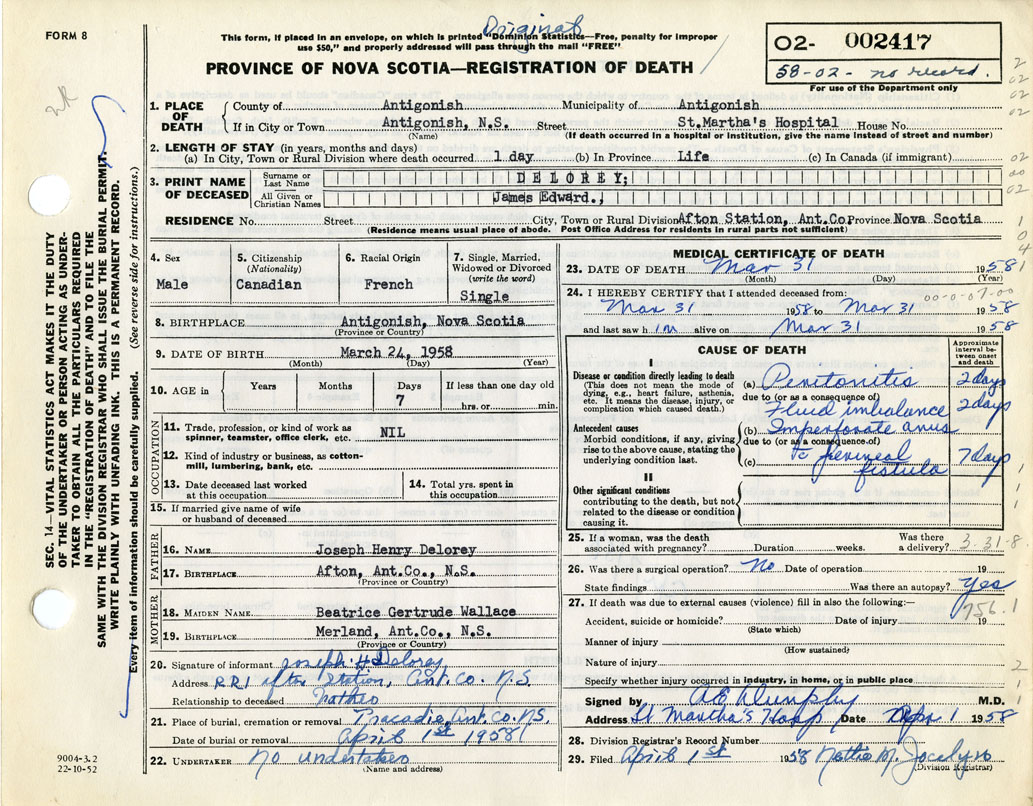 Original
FORM 8
This form, if placed in an envelope, on which is printed "Dominion Statistics—Free, penalty for improper
use $50," and properly addressed will pass through the mail "FREE"
PROVINCE OF NOVA SCOTIA—REGISTRATION OF DEATH
02- 002417
58-02- no record.
For use of the Department only
SEC. 14—VITAL STATISTICS ACT MAKES IT THE DUTY
OF THE UNDERTAKER OR PERSON ACTING AS UNDER-
TAKER TO OBTAIN ALL THE PARTICULARS REQUIRED
IN THE "REGISTRATION OF DEATH" AND TO FILE THE
SAME WITH THE DIVISION REGISTRAR WHO SHALL ISSUE THE BURIAL PERMIT.
WRITE PLAINLY WITH UNFADING INK. THIS IS A PERMANENT RECORD.
Every item of information should be carefully supplied. (See reverse side for instructions.)
1. PLACE OF DEATH County of Antigonish Municipality of Antigonish
If in City or Town Antigonish, N.S. Street St.Martha's Hospital House No.
(Name) (If death occurred in a hospital or institution, give the name instead of street and number)
2. LENGTH OF STAY (in years, months and days)
(a) In City, Town or Rural Division where death occurred 1 day (b) In Province Life (c) In Canada (if immigrant)
3. PRINT NAME OF DECEASED Surname or Last Name DELOREY;
All Given or Christian Names James Edward.,
RESIDENCE No. Street City, Town or Rural Division Afton Station, Ant.Co. Province Nova Scotia
(Residence means usual place of abode. Post Office Address for residents in rural parts not sufficient)
4. Sex Male
5. Citizenship (Nationality) Canadian
6. Racial Origin French
7. Single, Married, Widowed or Divorced (write the word) Single
8. BIRTHPLACE Antigonish, Nova Scotia
(Province or Country)
9. DATE OF BIRTH March 24, 1958
(Month) (Day) (Year)
10. AGE in Years Months Days 7 If less than one day old hrs. or min.
OCCUPATION
11. Trade, profession, or kind of work as
spinner, teamster, office clerk, etc. NIL
12. Kind of industry or business, as cotton-
mill, lumbering, bank, etc.
13. Date deceased last worked
at this occupation
14. Total yrs. spent in
this occupation
15. If married give name of wife
or husband of deceased
FATHER
16. NAME Joseph Henry Delorey
17. BIRTHPLACE Afton, Ant.Co., N.S.
(Province or Country)
MOTHER
18. MAIDEN NAME Beatrice Gertrude Wallace
19. BIRTHPLACE Merland, Ant.Co., N.S.
(Province or Country)
20. Signature of informant Joseph H Delorey
Address R.R.1 Afton Station, Ant. Co. N.S.
Relationship to deceased
21. Place of burial, cremation or removal Tracadie, Ant. Co. N.S.
Date of burial or removal April 1st 1958
22. UNDERTAKER No undertaker
(Name and address)
9004-3.2
22-10-52
MEDICAL CERTIFICATE OF DEATH
23. DATE OF DEATH Mar 31 1958
(Month) (Day) (Year)
24. I HEREBY CERTIFY that I attended deceased from: 00-0-07-00
Mar 31 1958 to Mar 31 1958
and last saw h im alive on Mar 31 1958
CAUSE OF DEATH
Approximate interval between onset and death
I
Disease or condition directly leading to death
(This does not mean the mode of
dying, e.g., heart failure, asthenia,
etc. It means the disease, injury, or
complication which caused death.)
(a) Peritonitis 2 days
due to (or as a consequence of)
Fluid imbalance 2 days
Antecedent causes
Morbid conditions, if any, giving
rise to the above cause, stating the
underlying condition last.
(b) Imperforate anus
due to (or as a consequence of)
(c) perineal fistula 7 days
II
Other significant conditions
contributing to the death, but not
related to the disease or condition
causing it.
25. If a woman, was the death
associated with pregnancy? Duration weeks. Was there
a delivery? 3-31-8.
26. Was there a surgical operation? No Date of operation 19
State findings Was there an autopsy? Yes
27. If death was due to external causes (violence) fill in also the following:— 756.1
Accident, suicide or homicide? Date of injury 19
(State which)
Manner of injury
(How sustained)
Nature of injury
Specify whether injury occurred in industry, in home, or in public place
Signed by M.D.
Address St Martha's Hosp Date Apr 1 1958
28. Division Registrar's Record Number
29. Filed April 1st 1958
(Division Registrar)